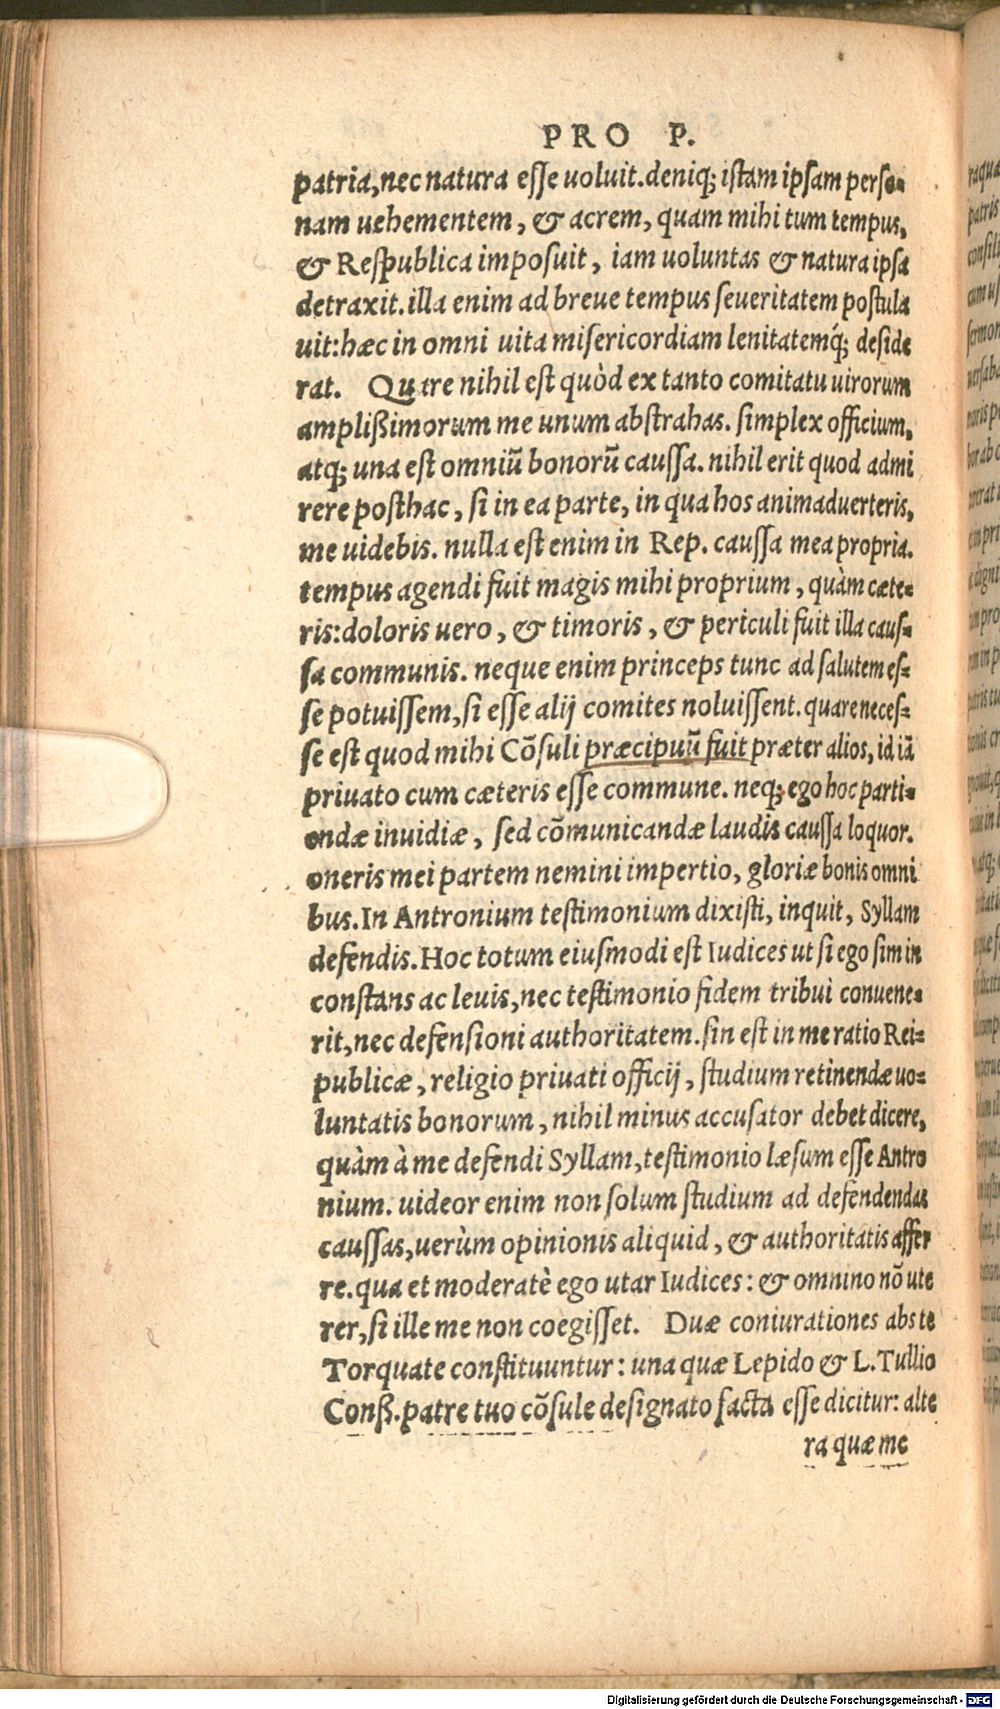 PRO P.
patria, nec natura esse uoluit. deniq; istam ipsam perso-
nam uehementem, & acrem, quam mihi tum tempus,
& Respublica imposuit, iam uoluntas & natura ipsa
detraxit. illa enim ad breue tempus seueritatem postula
uit: hæc in omni uita misericordiam lenitatemq́; deside
rat. Quare nihil est quòd ex tanto comitatu uirorum
amplißimorum me unum abstrahas. simplex officium,
atq; una est omniū bonorū caussa. nihil erit quod admi
rere posthac, si in ea parte, in qua hos animaduerteris,
me uidebis. nulla est enim in Rep. caussa mea propria.
tempus agendi fuit magis mihi proprium, quàm cæte-
ris: doloris uero, & timoris, & periculi fuit illa caus-
sa communis. neque enim princeps tunc ad salutem es-
se potuissem, si esse alij comites noluissent. quare neces-
se est quod mihi Cōsuli præcipuū fuit præter alios, id iā
priuato cum cæteris esse commune. neq; ego hoc parti-
endæ inuidiæ, sed cōmunicandæ laudis caussa loquor.
oneris mei partem nemini impertio, gloriæ bonis omni
bus. In Antronium testimonium dixisti, inquit, Syllam
defendis. Hoc totum eiusmodi est Iudices ut si ego sim in
constans ac leuis, nec testimonio fidem tribui conuene-
rit, nec defensioni authoritatem. sin est in me ratio Rei-
publicæ, religio priuati officij, studium retinendæ uo-
luntatis bonorum, nihil minus accusator debet dicere,
quàm à me defendi Syllam, testimonio læsum esse Antro
nium. uideor enim non solum studium ad defendendas
caussas, uerùm opinionis aliquid, & authoritatis affer
re. qua et moderatè ego utar Iudices: & omnino nō ute
rer, si ille me non coegisset. Duæ coniurationes abs te
Torquate constituuntur: una quæ Lepido & L. Tullio
Conß. patre tuo cōsule designato facta esse dicitur: alte
ra quæ me
Digitalisierung gefördert durch die Deutsche Forschungsgemeinschaft - DFG